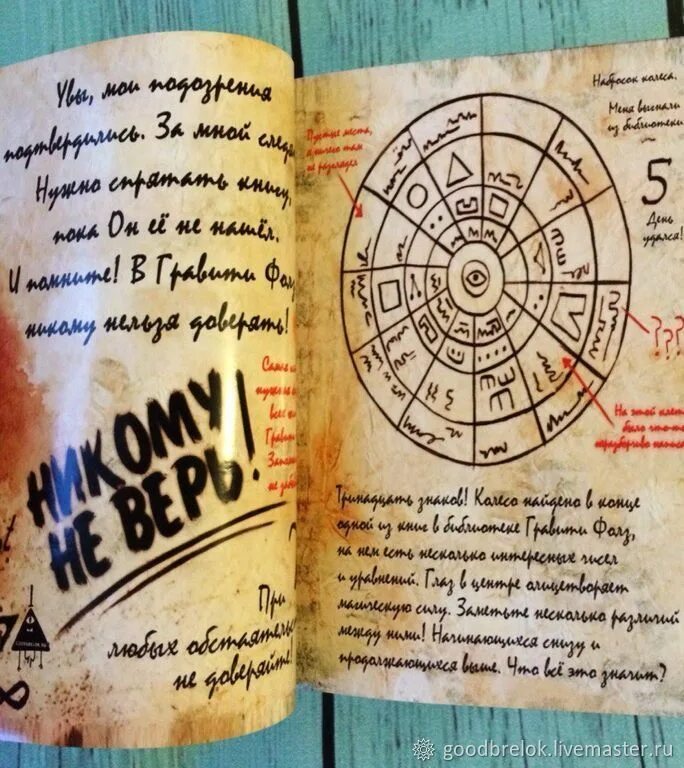 Увы, мои подозрения
подтвердились. За мной
Нужно спрятать книгу,
пока Он её не нашёл.
И помните! В Гравити Фолз
никому нельзя доверять!
НИКОМУ
НЕ ВЕРЬ!
При
любых
не доверяйте!
Набросок колеса.
Меня выгнали
из библиотеки
5
День
удался!
Пустые места,
я ничего там
не разглядел
???
На этой
было что-то
неразборчиво
Тринадцать знаков! Колесо найдено в конце
одной из книг в библиотеке Гравити Фолз,
на нем есть несколько интересных чисел
и уравнений. Глаз в центре олицетворяет
магическую силу. Заметьте несколько различий
между ними! Начинающихся снизу и
продолжающихся выше. Что всё это значит?
goodbrelok.livemaster.ru